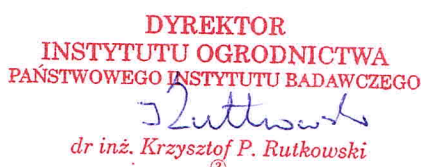 DYREKTOR
INSTYTUTU OGRODNICTWA
PAŃSTWOWEGO INSTYTUTU BADAWCZEGO
dr inż. Krzysztof P. Rutkowski